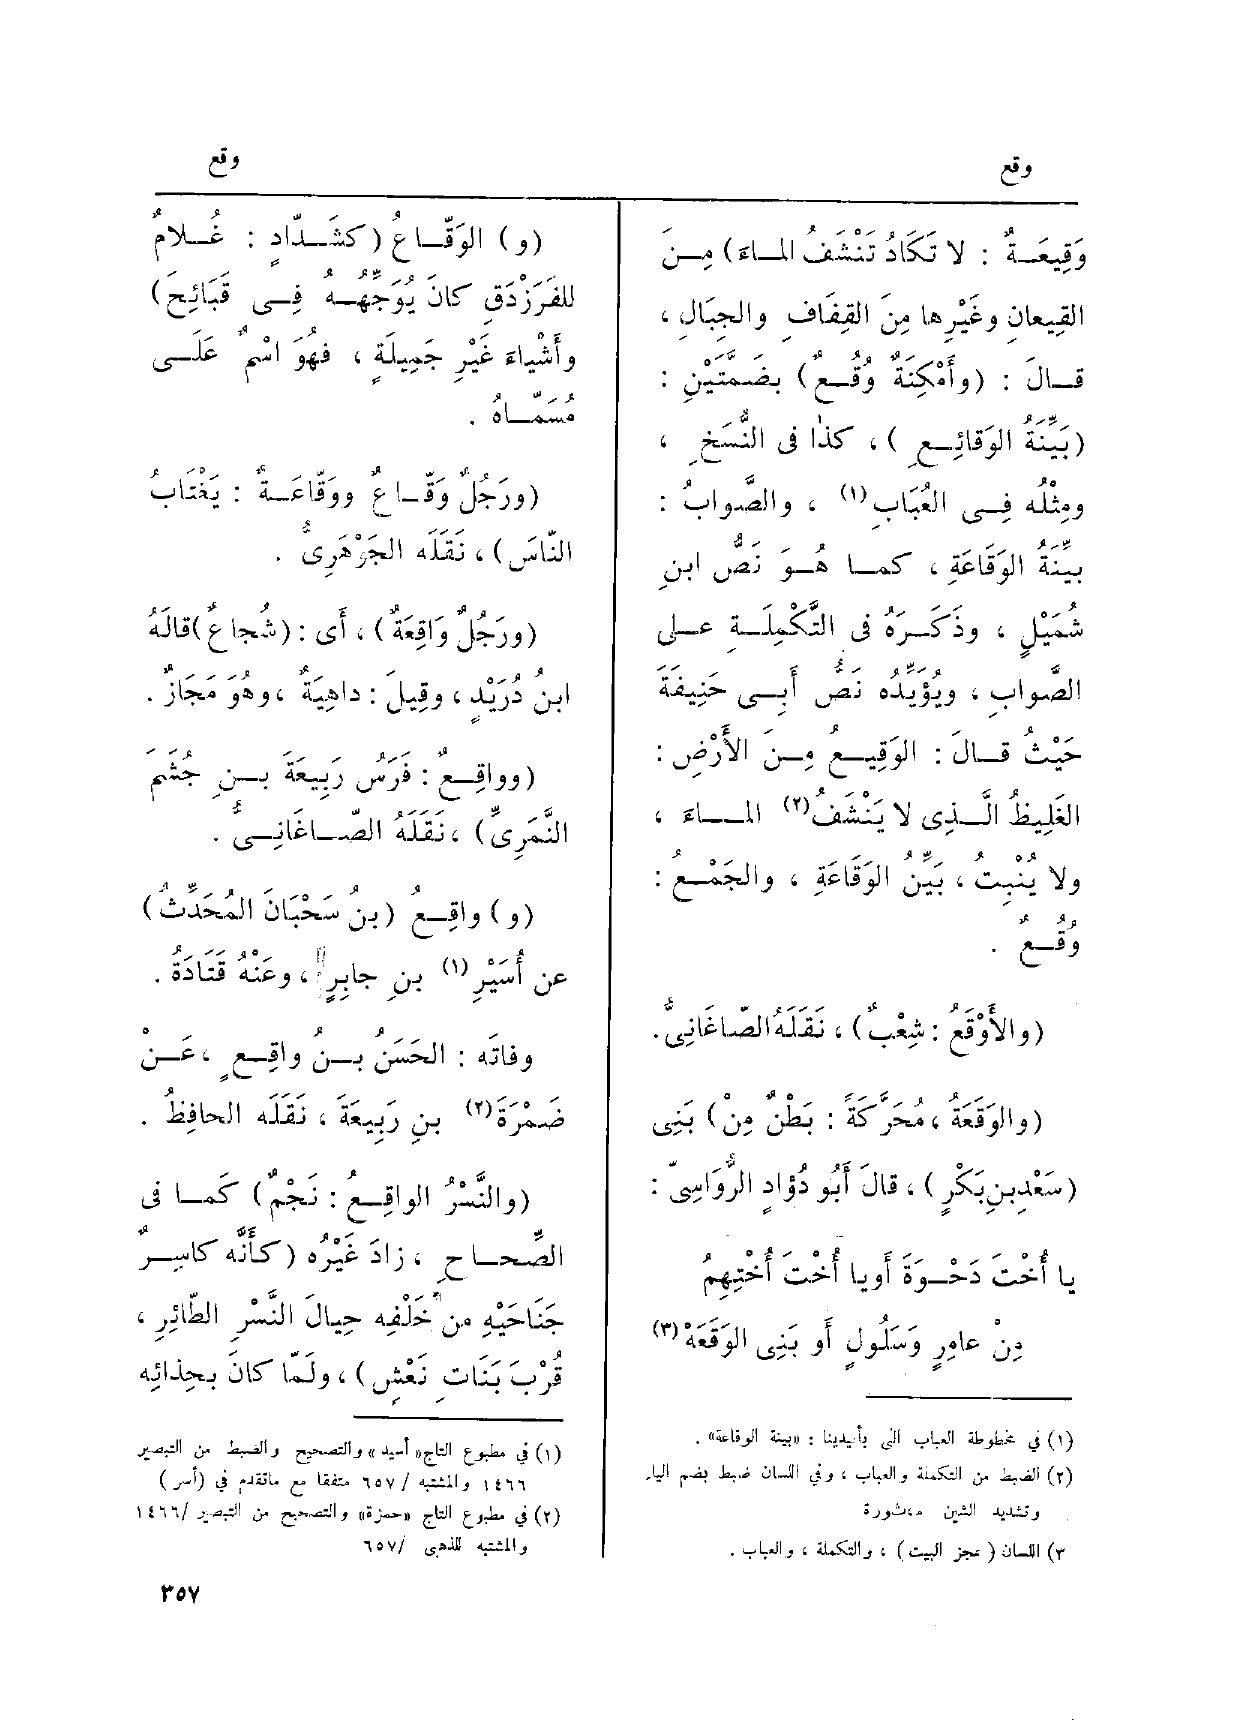 وقع
وقع
وَقِيعَــةٌ : لا تَكَادُ تَنْشَفُ المــاءَ) مِــنَ
القِيعانِ وغَيْرِها مِنَ القِفَافِ والجِبَالِ ،
قــالَ : (وأَمْكِنَةٌ وُقُــعٌ) بضَمَّتَيْنِ :
(بَيِّنَةُ الوَقائِــعِ) ، كذَا فى النُّسَخِ ،
ومِثْلُه فِــى العُبَابِ(١) ، والصَّوابُ :
بيِّنَةُ الوَقَاعَةِ ، كمــا هُــوَ نَصُّ ابنِ
شُمَيْلٍ ، وذَكَــرَهُ فى التَّكْمِلَــةِ علــى
الصَّوابِ ، ويُؤَيِّدُه نَصُّ أَبِــى حَنِيفَةَ
حَيْثُ قــالَ : الوَقِيــعُ مِــنَ الأَرْضِ :
الغَلِيظُ الَّــذِى لا يَنْشَفُ(٢) المــاءَ ،
ولا يُنْبِتُ ، بَيِّنُ الوَقَاعَةِ ، والجَمْــعُ :
وُقُــعٌ .
(والأَوْقَعُ : شِعْبٌ) ، نَقَلَهُ الصّاغَانِىُّ .
(والوَقَعَةُ ، مُحَرَّكَةً : بَطْنٌ مِنْ) بَنِى
(سَعْدِ بنِ بَكْرٍ) ، قالَ أَبُو دُؤَادٍ الرُّوَاسِىّ :
يا أُخْتَ دَحْــوَةَ أَو يا أُخْتَ أُخْتِهِمُ
مِنْ عامِرٍ وَسَلُولٍ أَو بَنِى الوَقَعَهْ(٣)
(١) في مخطوطة العباب التى بأيدينا : «بينة الوقاعة» .
(٢) الضبط من التكملة والعباب ، وفي اللسان ضبط بضم الياء
وتشديد الشين مكسورة
٣) اللسان (عجز البيت) ، والتكملة ، والعباب .
(و) الوَقّــاعُ (كشَــدّادٍ : غُــلامٌ
للفَرَزْدَقِ كانَ يُوَجِّهُــه فِــى قَبَائِحَ)
وأَشْياءَ غَيْرِ جَمِيلَةٍ ، فهُوَ اسْمٌ عَلَــى
مُسَمّــاهُ .
(ورَجُلٌ وَقّــاعٌ ووَقّاعَــةٌ : يَغْتَابُ
النّاسَ) ، نَقَلَه الجَوْهَرِىُّ .
(ورَجُلٌ وَاقِعَةٌ) ، أَى : (شُجاعٌ) قالَهُ
ابنُ دُرَيْدٍ ، وقِيلَ : داهِيَةٌ ، وهُوَ مَجَازٌ .
(وواقِــعٌ : فَرَسُ رَبِيعَةَ بــنِ جُشَمَ
النَّمَرِىِّ) ، نَقَلَهُ الصّــاغَانِــىُّ .
(و) واقِــعُ (بنُ سَحْبَانَ المُحَدِّثُ)
عن أُسَيْرِ(١) بنِ جابِرٍ ، وعَنْهُ قَتَادَةُ .
وفاتَه : الحَسَنُ بــنُ واقِــعٍ ، عَــنْ
ضَمْرَةَ(٢) بنِ رَبِيعَةَ ، نَقَلَه الحافِظُ .
(والنَّسْرُ الواقِــعُ : نَجْمٌ) كَمــا فى
الصِّحــاحِ ، زادَ غَيْرُه (كأَنَّه كاسِــرٌ
جَنَاحَيْهِ من خَلْفِه حِيالَ النَّسْرِ الطّائِرِ ،
قُرْبَ بَنَاتِ نَعْشٍ) ، ولَمّا كانَ بحِذائِه
(١) في مطبوع التاج «أسيد» والتصحيح والضبط من التبصير
١٤٦٦ والمشتبه / ٦٥٧ متفقا مع ماتقدم في (أسر)
(٢) في مطبوع التاج «حمزة» والتصحيح من التبصير /١٤٦٦
والمشتبه للذهبى /٦٥٧
٣٥٧